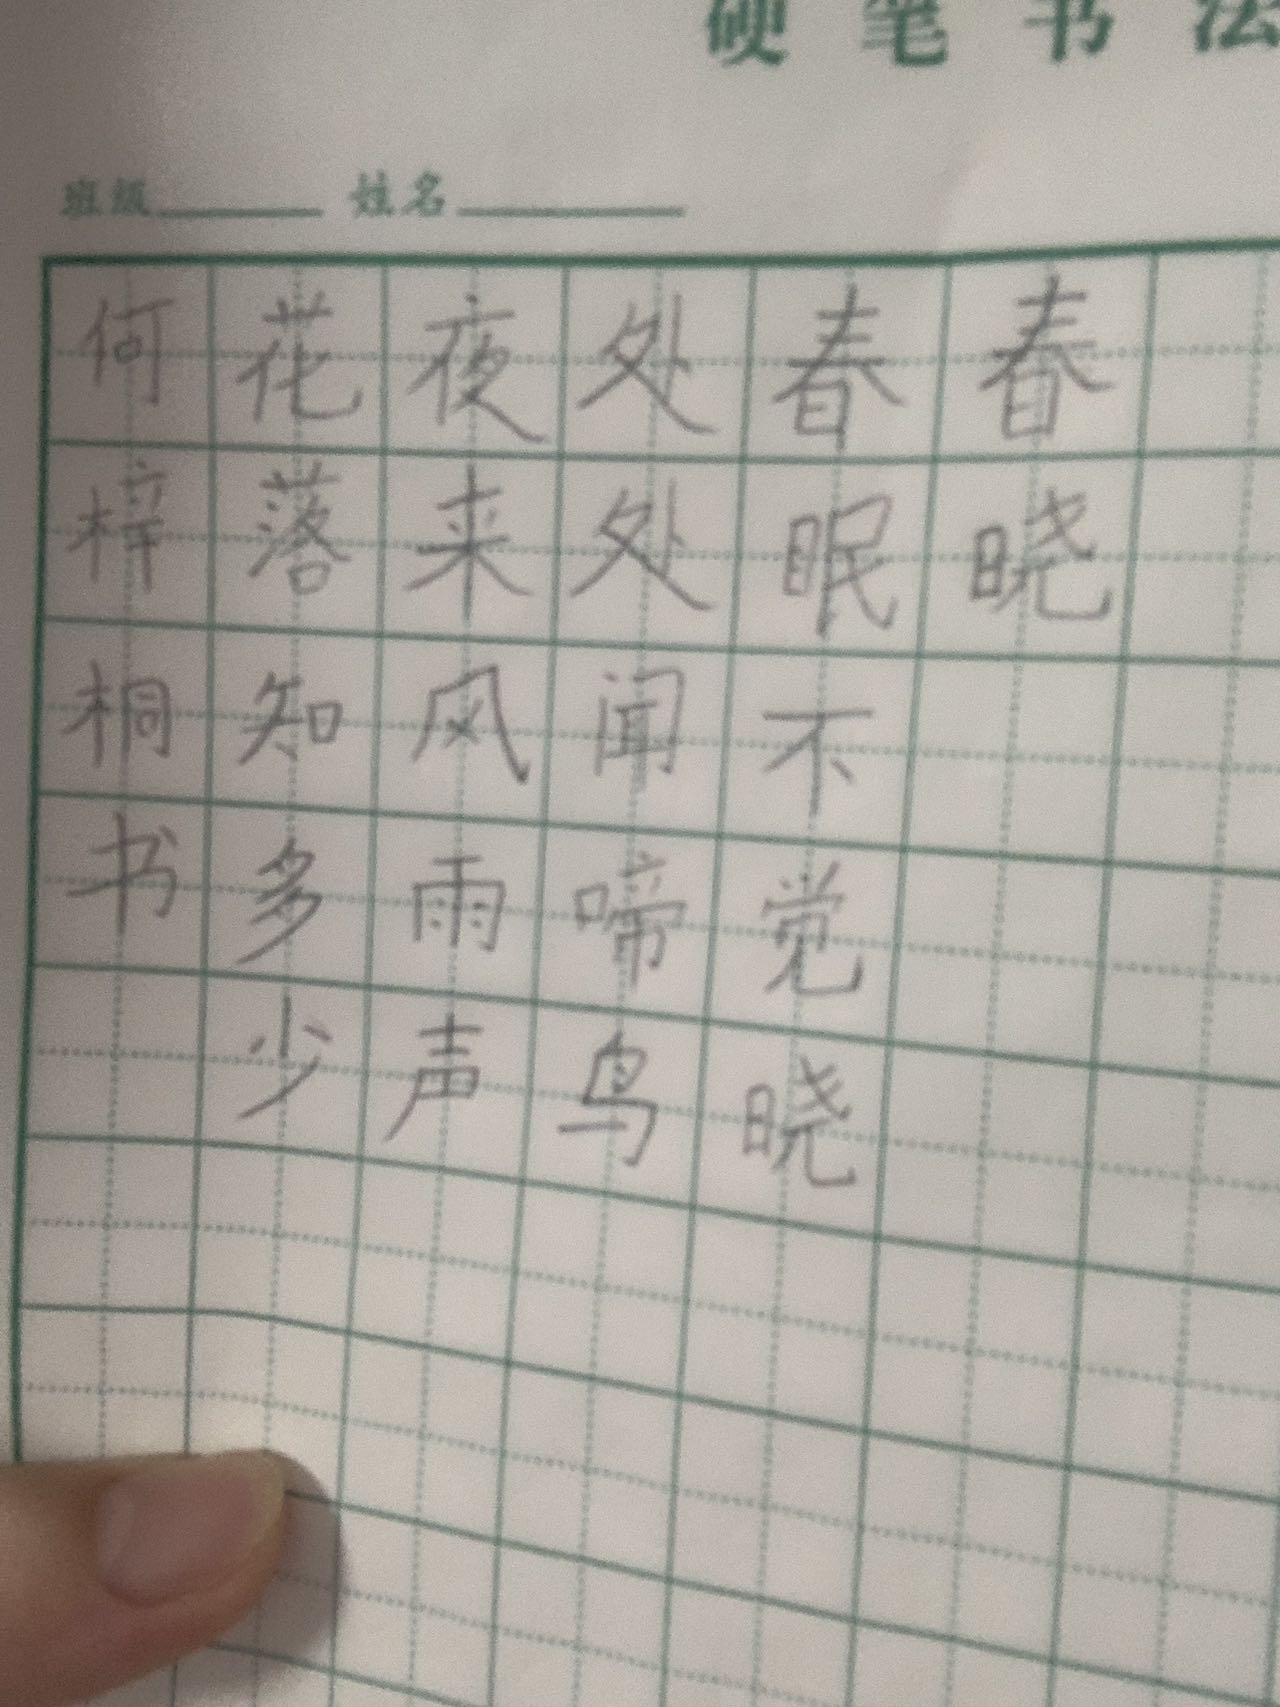 硬笔书法
班级 姓名
春晓
春眠不觉晓
处处闻啼鸟
夜来风雨声
花落知多少
何梓桐书